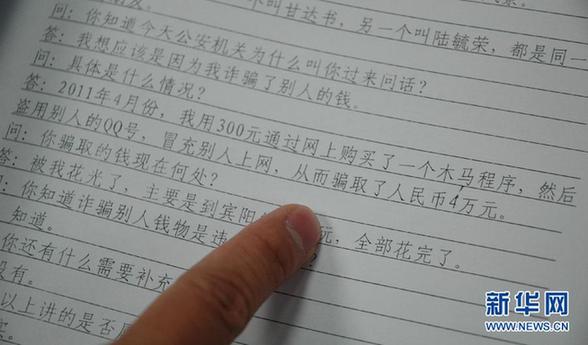 不叫甘达书，另一个叫陆毓荣，都是同一
问：你知道今天公安机关为什么叫你过来问话？
答：我想应该是因为我诈骗了别人的钱。
问：具体是什么情况？
答：2011年4月份，我用300元通过网上购买了一个木马程序，然后
盗用别人的QQ号，冒充别人上网，从而骗取了人民币4万元。
问：你骗取的钱现在何处？
答：被我花光了，主要是到宾阳 玩，全部花完了。
你知道诈骗别人钱物是违 ？
知道。
你还有什么需要补充
没有。
以上讲的是否
新华网
WWW.NEWS.CN